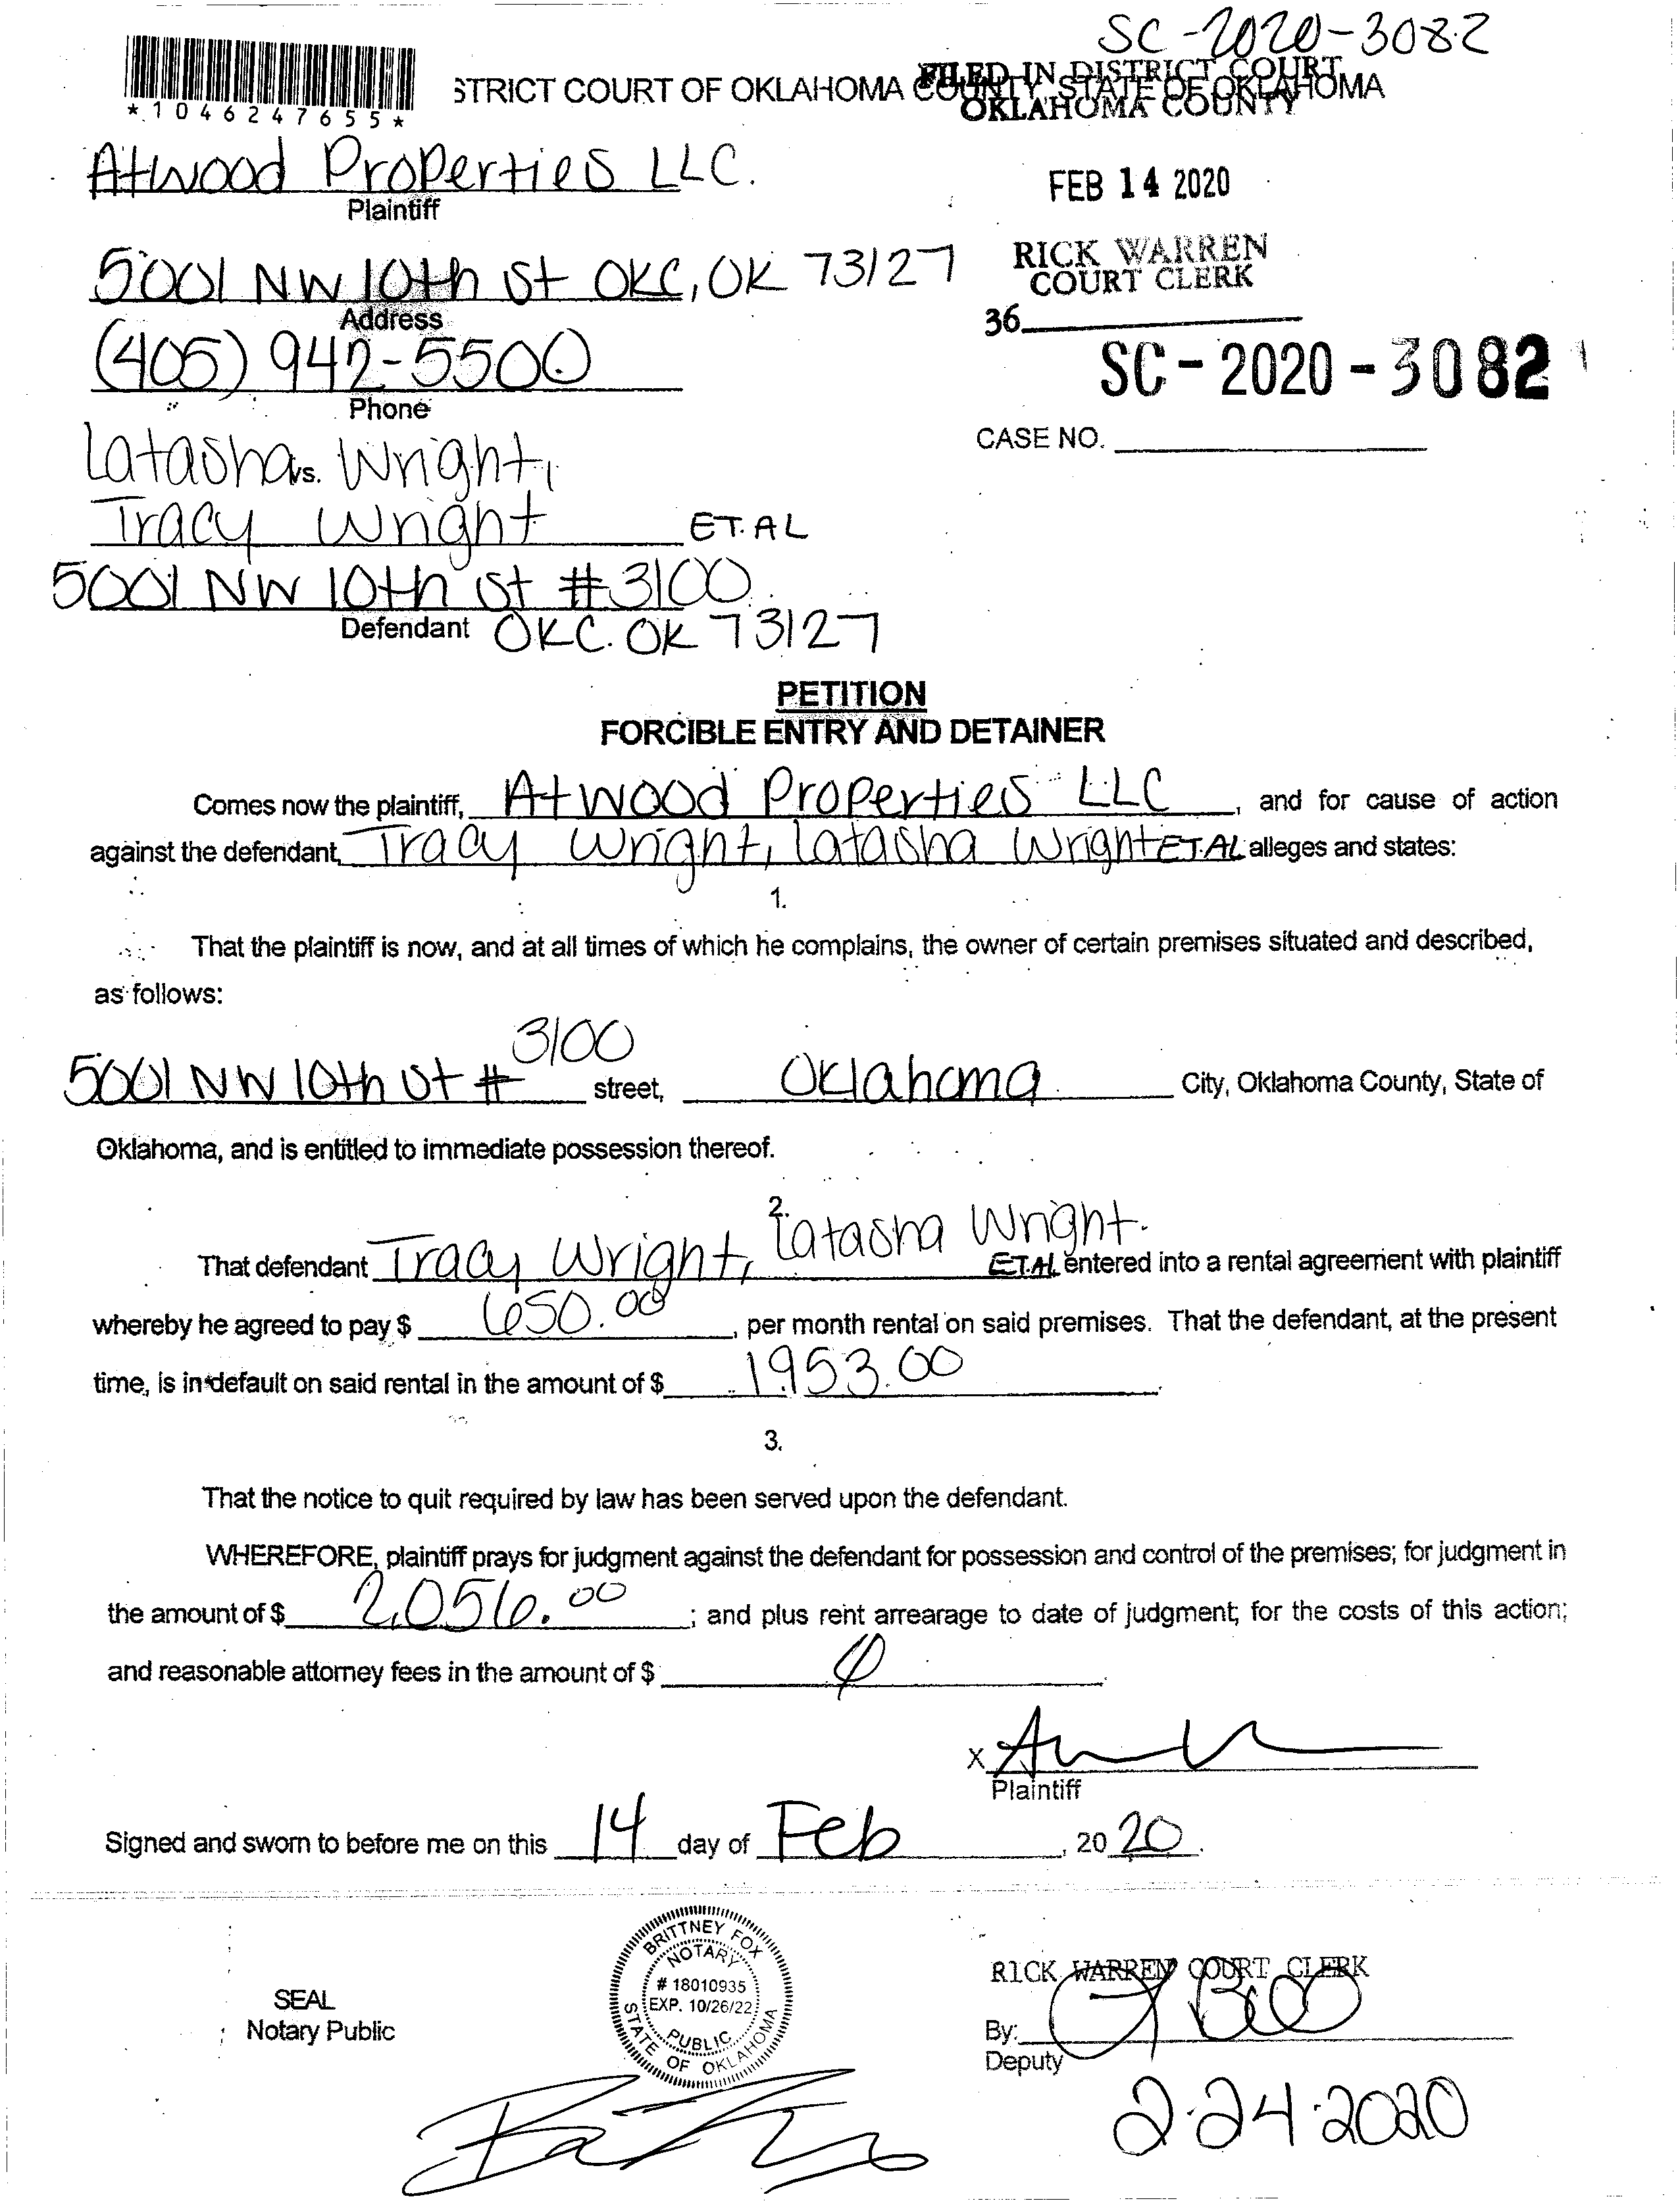 SC-2020-3082
*1046247655*
STRICT COURT OF OKLAHOMA COUNTY STATE OF OKLAHOMA
FILED IN DISTRICT COURT
OKLAHOMA COUNTY
Atwood Properties LLC.
Plaintiff
FEB 14 2020
5001 NW 10th St OKC, OK 73127
Address
RICK WARREN
COURT CLERK
36
(405) 942-5500
Phone
SC-2020-3082
CASE NO.
Latasha vs. Wright,
Tracy Wright ET.AL
5001 NW 10th St #3100
Defendant OKC. OK 73127
PETITION
FORCIBLE ENTRY AND DETAINER
Comes now the plaintiff, Atwood Properties LLC, and for cause of action
against the defendant, Tracy Wright, Latasha Wright ET.AL alleges and states:
1.
That the plaintiff is now, and at all times of which he complains, the owner of certain premises situated and described,
as follows:
5001 NW 10th St # 3100 street, Oklahoma City, Oklahoma County, State of
Oklahoma, and is entitled to immediate possession thereof.
2.
That defendant Tracy Wright, Latasha Wright. ET.AL entered into a rental agreement with plaintiff
whereby he agreed to pay $ 650.00, per month rental on said premises. That the defendant, at the present
time, is in default on said rental in the amount of $ 1953.00.
3.
That the notice to quit required by law has been served upon the defendant.
WHEREFORE, plaintiff prays for judgment against the defendant for possession and control of the premises; for judgment in
the amount of $ 2,056.00; and plus rent arrearage to date of judgment; for the costs of this action;
and reasonable attorney fees in the amount of $
X
Plaintiff
Signed and sworn to before me on this 14 day of Feb, 2020.
SEAL
Notary Public
BRITTNEY FOX
NOTARY
# 18010935
EXP. 10/26/22
PUBLIC
STATE OF OKLAHOMA
RICK WARREN COURT CLERK
By:
Deputy
2-24-2020